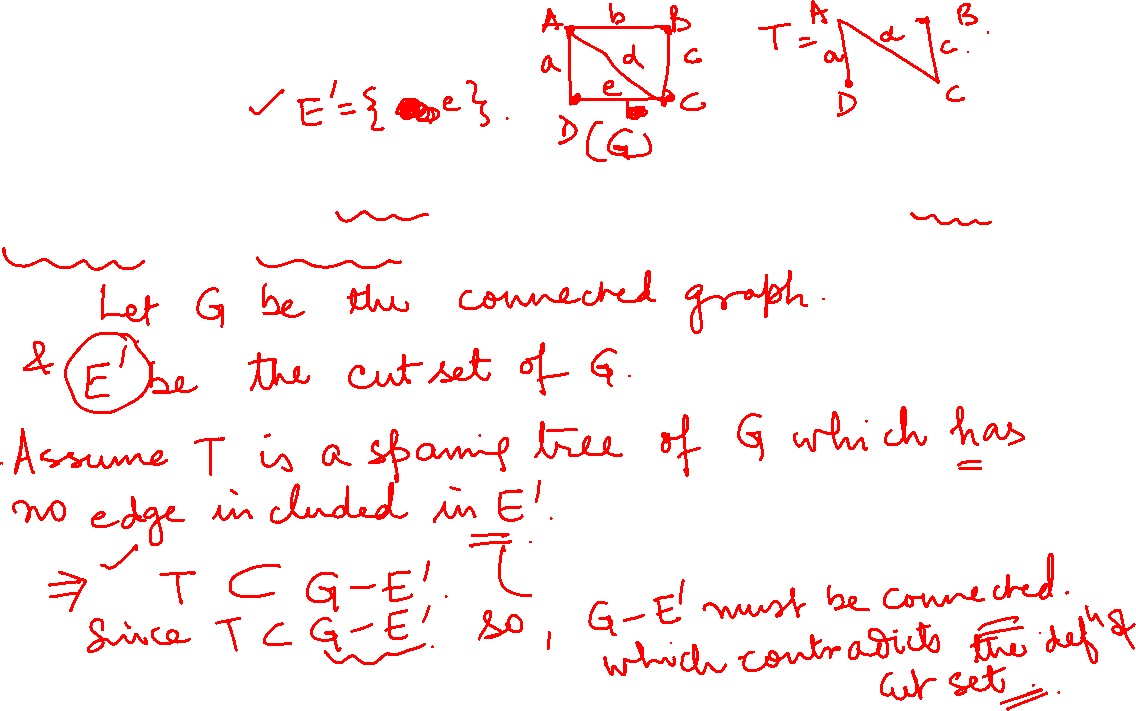 A b B
a d c
e
D C
(G)
T = A B.
a d c.
D C
✓ E' = { e }.
Let G be the connected graph.
& E' be the cut set of G.
Assume T is a spaning tree of G which has
no edge included in E'.
⇒ ✓ T ⊂ G-E'.
Since T ⊂ G-E'. so, G-E' must be connected.
which contradicts the defⁿ of
cut set.